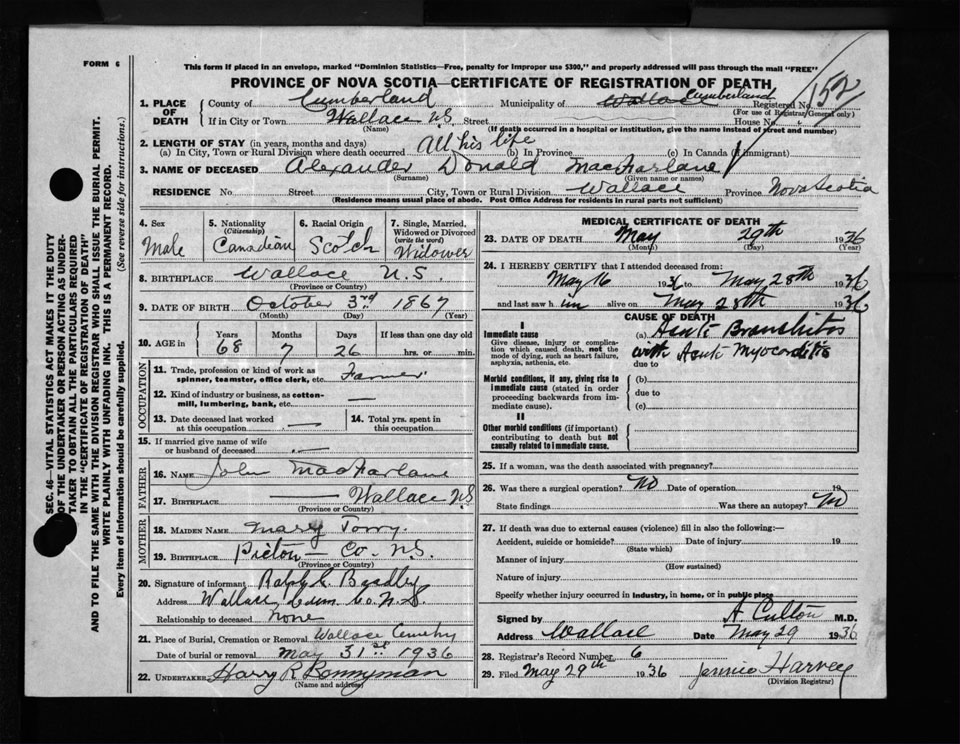 FORM 6
This form if placed in an envelope, marked "Dominion Statistics—Free, penalty for improper use $300," and properly addressed will pass through the mail "FREE"
PROVINCE OF NOVA SCOTIA—CERTIFICATE OF REGISTRATION OF DEATH
152
1. PLACE OF DEATH County of Cumberland Municipality of Wallace Cumberland Registered No.
(For use of Registrar General only)
If in City or Town Wallace N.S. Street House No.
(Name) (If death occurred in a hospital or institution, give the name instead of street and number)
2. LENGTH OF STAY (in years, months and days)
(a) In City, Town or Rural Division where death occurred All his life (b) In Province (c) In Canada (if immigrant)
3. NAME OF DECEASED Alexander Donald MacFarlane
(Surname) (Given name or names)
RESIDENCE No Street City, Town or Rural Division Wallace Province Nova Scotia
(Residence means usual place of abode. Post Office Address for residents in rural parts not sufficient)
4. Sex Male
5. Nationality (Citizenship) Canadian
6. Racial Origin Scotch
7. Single, Married, Widowed or Divorced (write the word) Widower
8. BIRTHPLACE Wallace N.S.
(Province or Country)
9. DATE OF BIRTH October 3rd 1867
(Month) (Day) (Year)
10. AGE in Years Months Days If less than one day old
68 7 26 hrs. or min.
OCCUPATION
11. Trade, profession or kind of work as spinner, teamster, office clerk, etc. Farmer
12. Kind of industry or business, as cotton-mill, lumbering, bank, etc. —
13. Date deceased last worked at this occupation —
14. Total yrs. spent in this occupation
15. If married give name of wife or husband of deceased —
FATHER
16. NAME John MacFarlane
17. BIRTHPLACE Wallace N.S
(Province or Country)
MOTHER
18. MAIDEN NAME Mary
19. BIRTHPLACE Pictou — Co. N.S.
(Province or Country)
20. Signature of informant Ralph C. Beadley
Address Wallace, Cum. Co. N.S.
Relationship to deceased none
21. Place of Burial, Cremation or Removal Wallace Cemetry
Date of burial or removal May 31st 1936
22. UNDERTAKER Harry R
(Name and address)
MEDICAL CERTIFICATE OF DEATH
23. DATE OF DEATH May 29th 1936
(Month) (Day) (Year)
24. I HEREBY CERTIFY that I attended deceased from:
May 16 1936 to May 28th 1936
and last saw him alive on May 28th 1936
CAUSE OF DEATH
I
Immediate cause (a) Acute Bronchitis
Give disease, injury or complication which caused death, not the mode of dying, such as heart failure, asphyxia, asthenia, etc.
with Acute Myocarditis
due to
Morbid conditions, if any, giving rise to immediate cause (stated in order proceeding backwards from immediate cause).
(b)
due to
(c)
II
Other morbid conditions (if important) contributing to death but not causally related to immediate cause.
25. If a woman, was the death associated with pregnancy?
26. Was there a surgical operation? No Date of operation 19
State findings Was there an autopsy? No
27. If death was due to external causes (violence) fill in also the following:—
Accident, suicide or homicide? Date of injury 19
(State which)
Manner of injury
(How sustained)
Nature of injury
Specify whether injury occurred in industry, in home, or in public place
Signed by A Cutton M.D.
Address Wallace Date May 29 1936
28. Registrar's Record Number 6
29. Filed May 29th 1936 Jennie Harvey
(Division Registrar)
SEC. 46—VITAL STATISTICS ACT MAKES IT THE DUTY
OF THE UNDERTAKER OR PERSON ACTING AS UNDER-
TAKER TO OBTAIN ALL THE PARTICULARS REQUIRED
IN THE "CERTIFICATE OF REGISTRATION OF DEATH"
AND TO FILE THE SAME WITH THE DIVISION REGISTRAR WHO SHALL ISSUE THE BURIAL PERMIT.
WRITE PLAINLY WITH UNFADING INK. THIS IS A PERMANENT RECORD.
Every item of information should be carefully supplied. (See reverse side for instructions.)